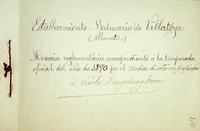 Establecimiento Balneario de Villatoya
(Albacete)
Memoria reglamentaria correspondiente á la temporada
oficial del año de 1890 por el medico director
D. Carlos